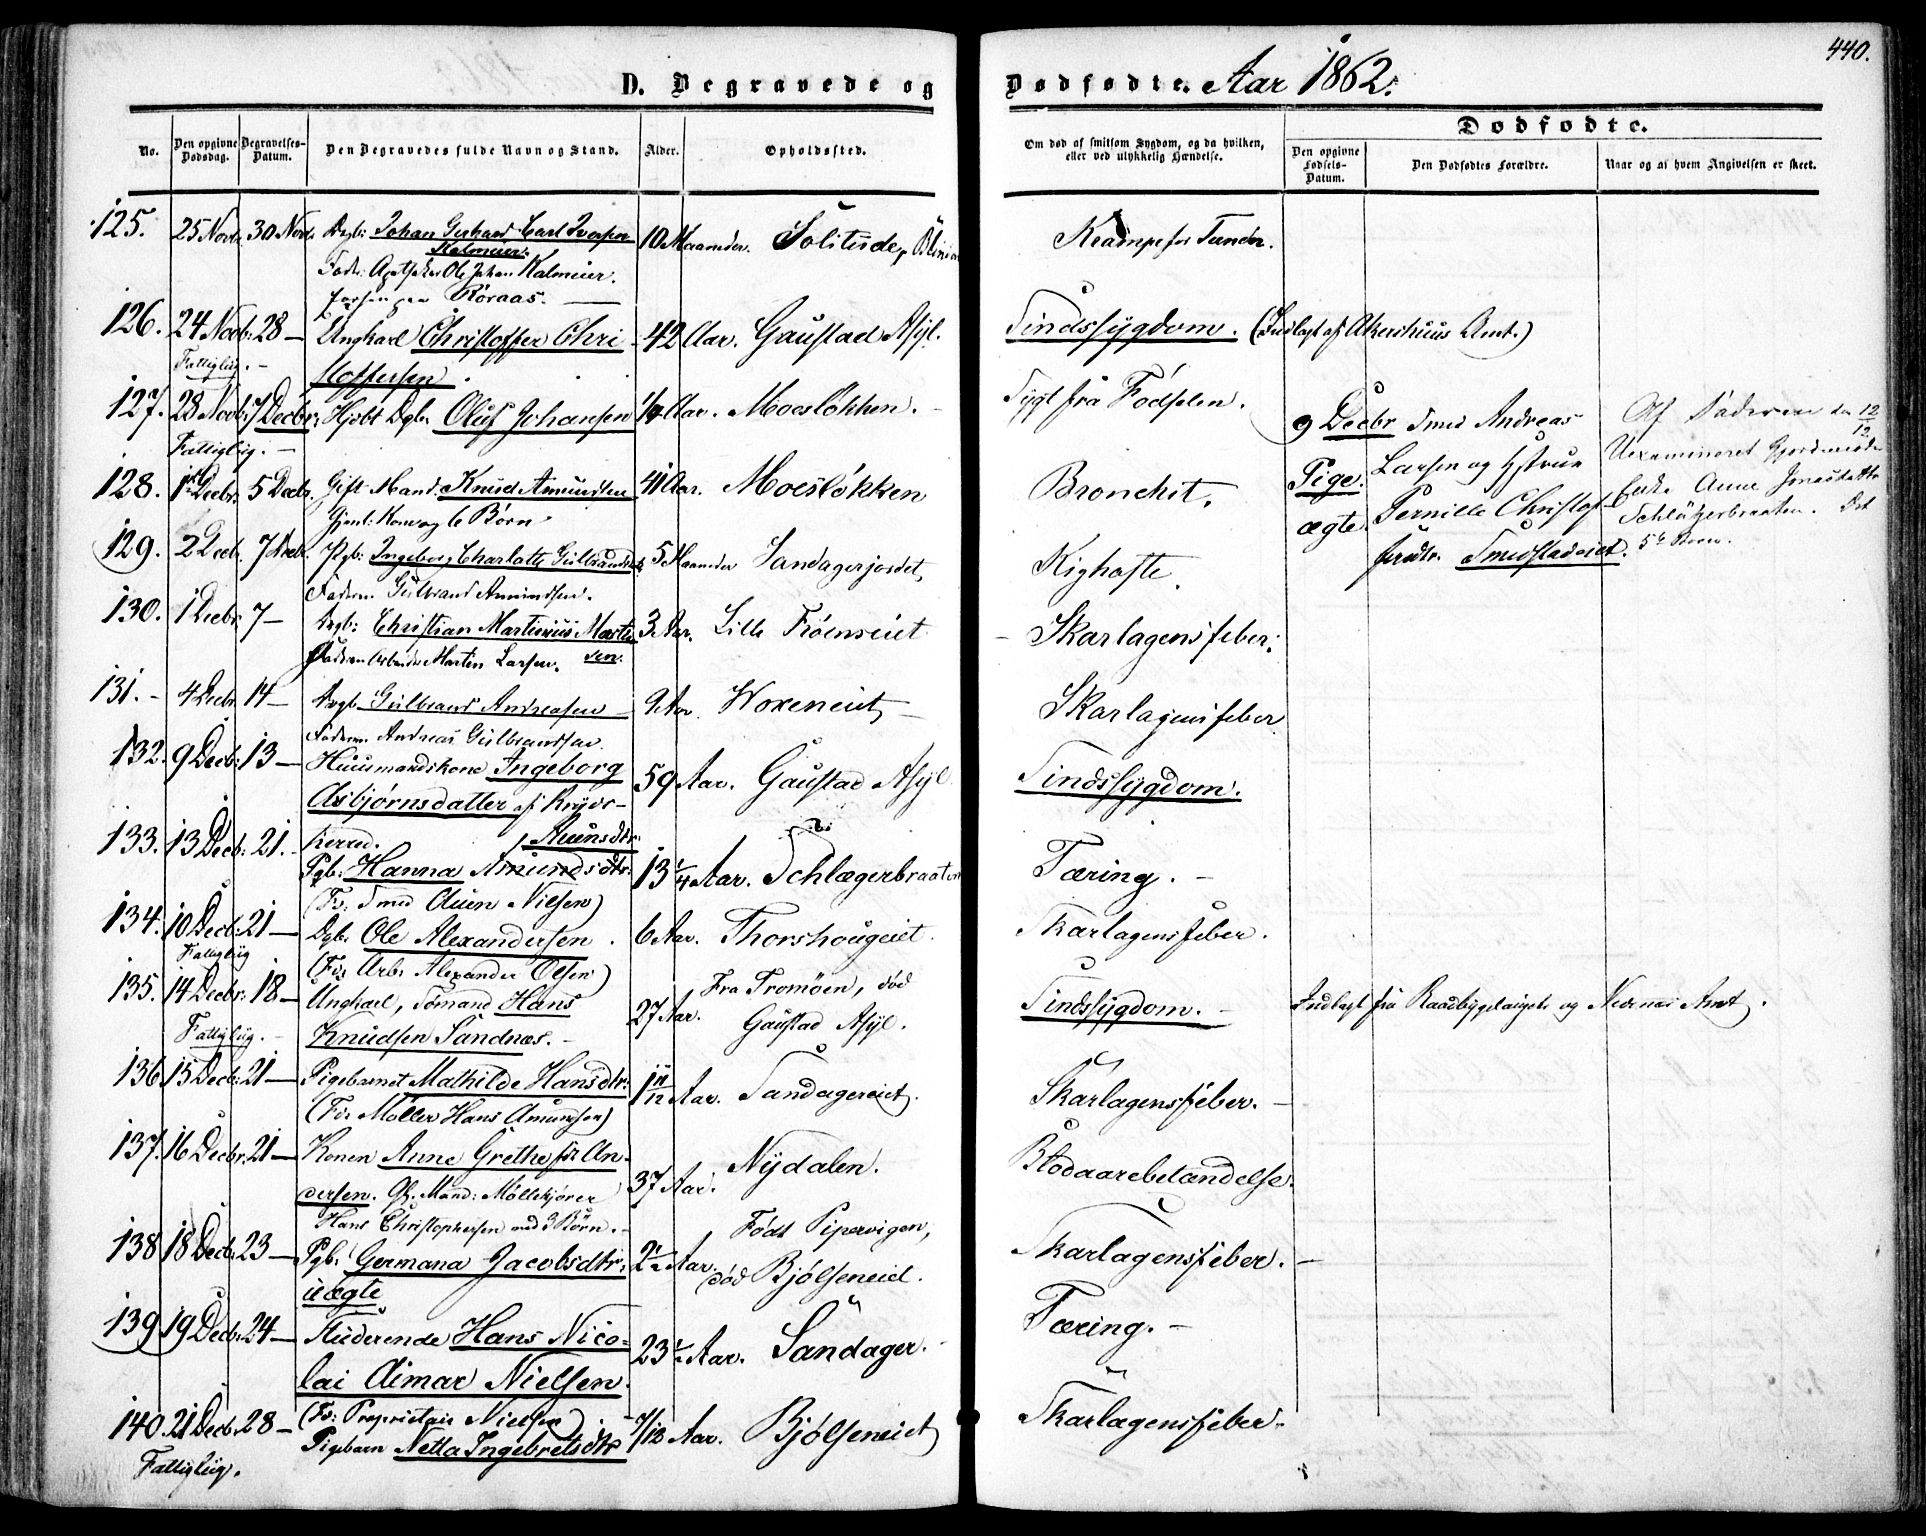 440.
D. Begravede og Dødfødte. Aar 1862.
No.
Den opgivne Dødsdag.
Begravelses-Datum.
Den Begravedes fulde Navn og Stand.
Alder.
Opholdssted.
Om død af smitsom Sygdom, og da hvilken, eller ved ulykkelig Hændelse.
Dødfødte.
Den opgivne Fødsels-Datum.
Den Dødfødtes Forældre.
Naar og af hvem Angivelsen er skeet.
125. 25 Novb. 30 Novb. Drgb: Johan Gerhard Carl Iversen 10 Maaneder. Solitude, Krampe for Tænder.
Kalmeier.
Fadr: Apotheker Ole Johan Kalmeier.
Røraas.
126. 24 Novb: 28 — Ungkarl Christoffer Chri 42 Aar. Gaustad Asyl. Sindssygdom. (Indlagt af Akershuus Amt.)
Fattiglig. — stoffersen.
127. 28 Novb: 7 Decbr. Oluf Johansen Aar. Moesløkken. — Sygt fra Fødselen.
Fattiglig. —
9 Decbr Smed Andreas
Pige. Larsen og Hstru
ægte. Pernille Christof-
fersdtr. Smedstadeiet.
Af Faderen den 12/12
Uexamineret Gjordemoder
Anne Jonasdatter
Schlægerbraaten. Det
5te Barn.
128. 1ste Decbr. 5 Decbr. Gift Mand: Knud Amundsen 41 Aar. Moesløkken Bronchit.
Gjenl: Kone og 6 Børn
129. 2 Decb. 7 Decb. Pgb: Ingeborg Charlotte Gulbrandsdtr 5 Maaneder Sandagerjordet, Kighoste.
Faderen Gulbrand Amundsen.
130. 1 Decbr. 7 — Drgb: Christian Martinius Martin 3 Aar. Lille Frøenseiet — Skarlagensfeber.
Faderen Arbeider Martin Larsen. sen.
131. — 4 Decbr. 14 — Drgb. Gulbrand Andreasen — 9 Aar. Voxeneiet, — Skarlagensfeber
Faderen Andreas Gulbrandsen.
132. 9 Decb: 13 — Huusmandskone Ingeborg 59 Aar. Gaustad Asyl Sindssygdom.
Asbjørnsdatter af
herred. Auensdtr.
133. 13 Decb: 21. — Pgb: Hanna Amundsdtr. 13 1/4 Aar. Schlægerbraaten Tæring. —
(Fr. Smed Auen Nielsen)
134. 10 Decb: 21 — Dgb. Ole Alexandersen. 6 Aar. Thorshougeiet. Skarlagensfeber.
Fattiglig (Fr. Arb: Alexander Olsen)
135. 14 Decbr: 18 — Ungkarl, Sømand Hans 27 Aar. Fra Tromøen, død Sindssygdom. — Indlagt fra Raabygdelaget og Nedenæs Amt.
Fattiglig. — Knudsen Sandnæs. — Gaustad Asyl.
136. 15 Decb: 21 — Pigebarnet Mathilde Hansdtr: 1 11/12 Aar. Sandagereiet. Skarlagensfeber. —
(Fr. Møller Hans Amundsen)
137. 16 Decbr. 21 — Konen Anne Grethe An- 37 Aar. Nydalen. Blodaarebetændelse.
dersen. Gl. Mand: Møllekjører
Hans Christophersen med 3 Børn. —
138 18 Decb: 23 — Pgb: Germana Jacobsdtr: 2 1/2 Aar. Født Pipervigen, Skarlagensfeber. —
uægte død Bjølseneiet.
139 19 Decb: 24 — Studerende Hans Nico- 23 1/2 Aar. Sandager. — Tæring. —
lai Aimar Nielsen.
(Fr: Proprietair Nielsen)
140. 21 Decb. 28 — Pigebarn Netta Ingebretsdtr 7/12 Aar. Bjølseneiet Skarlagensfeber —
Fattiglig.